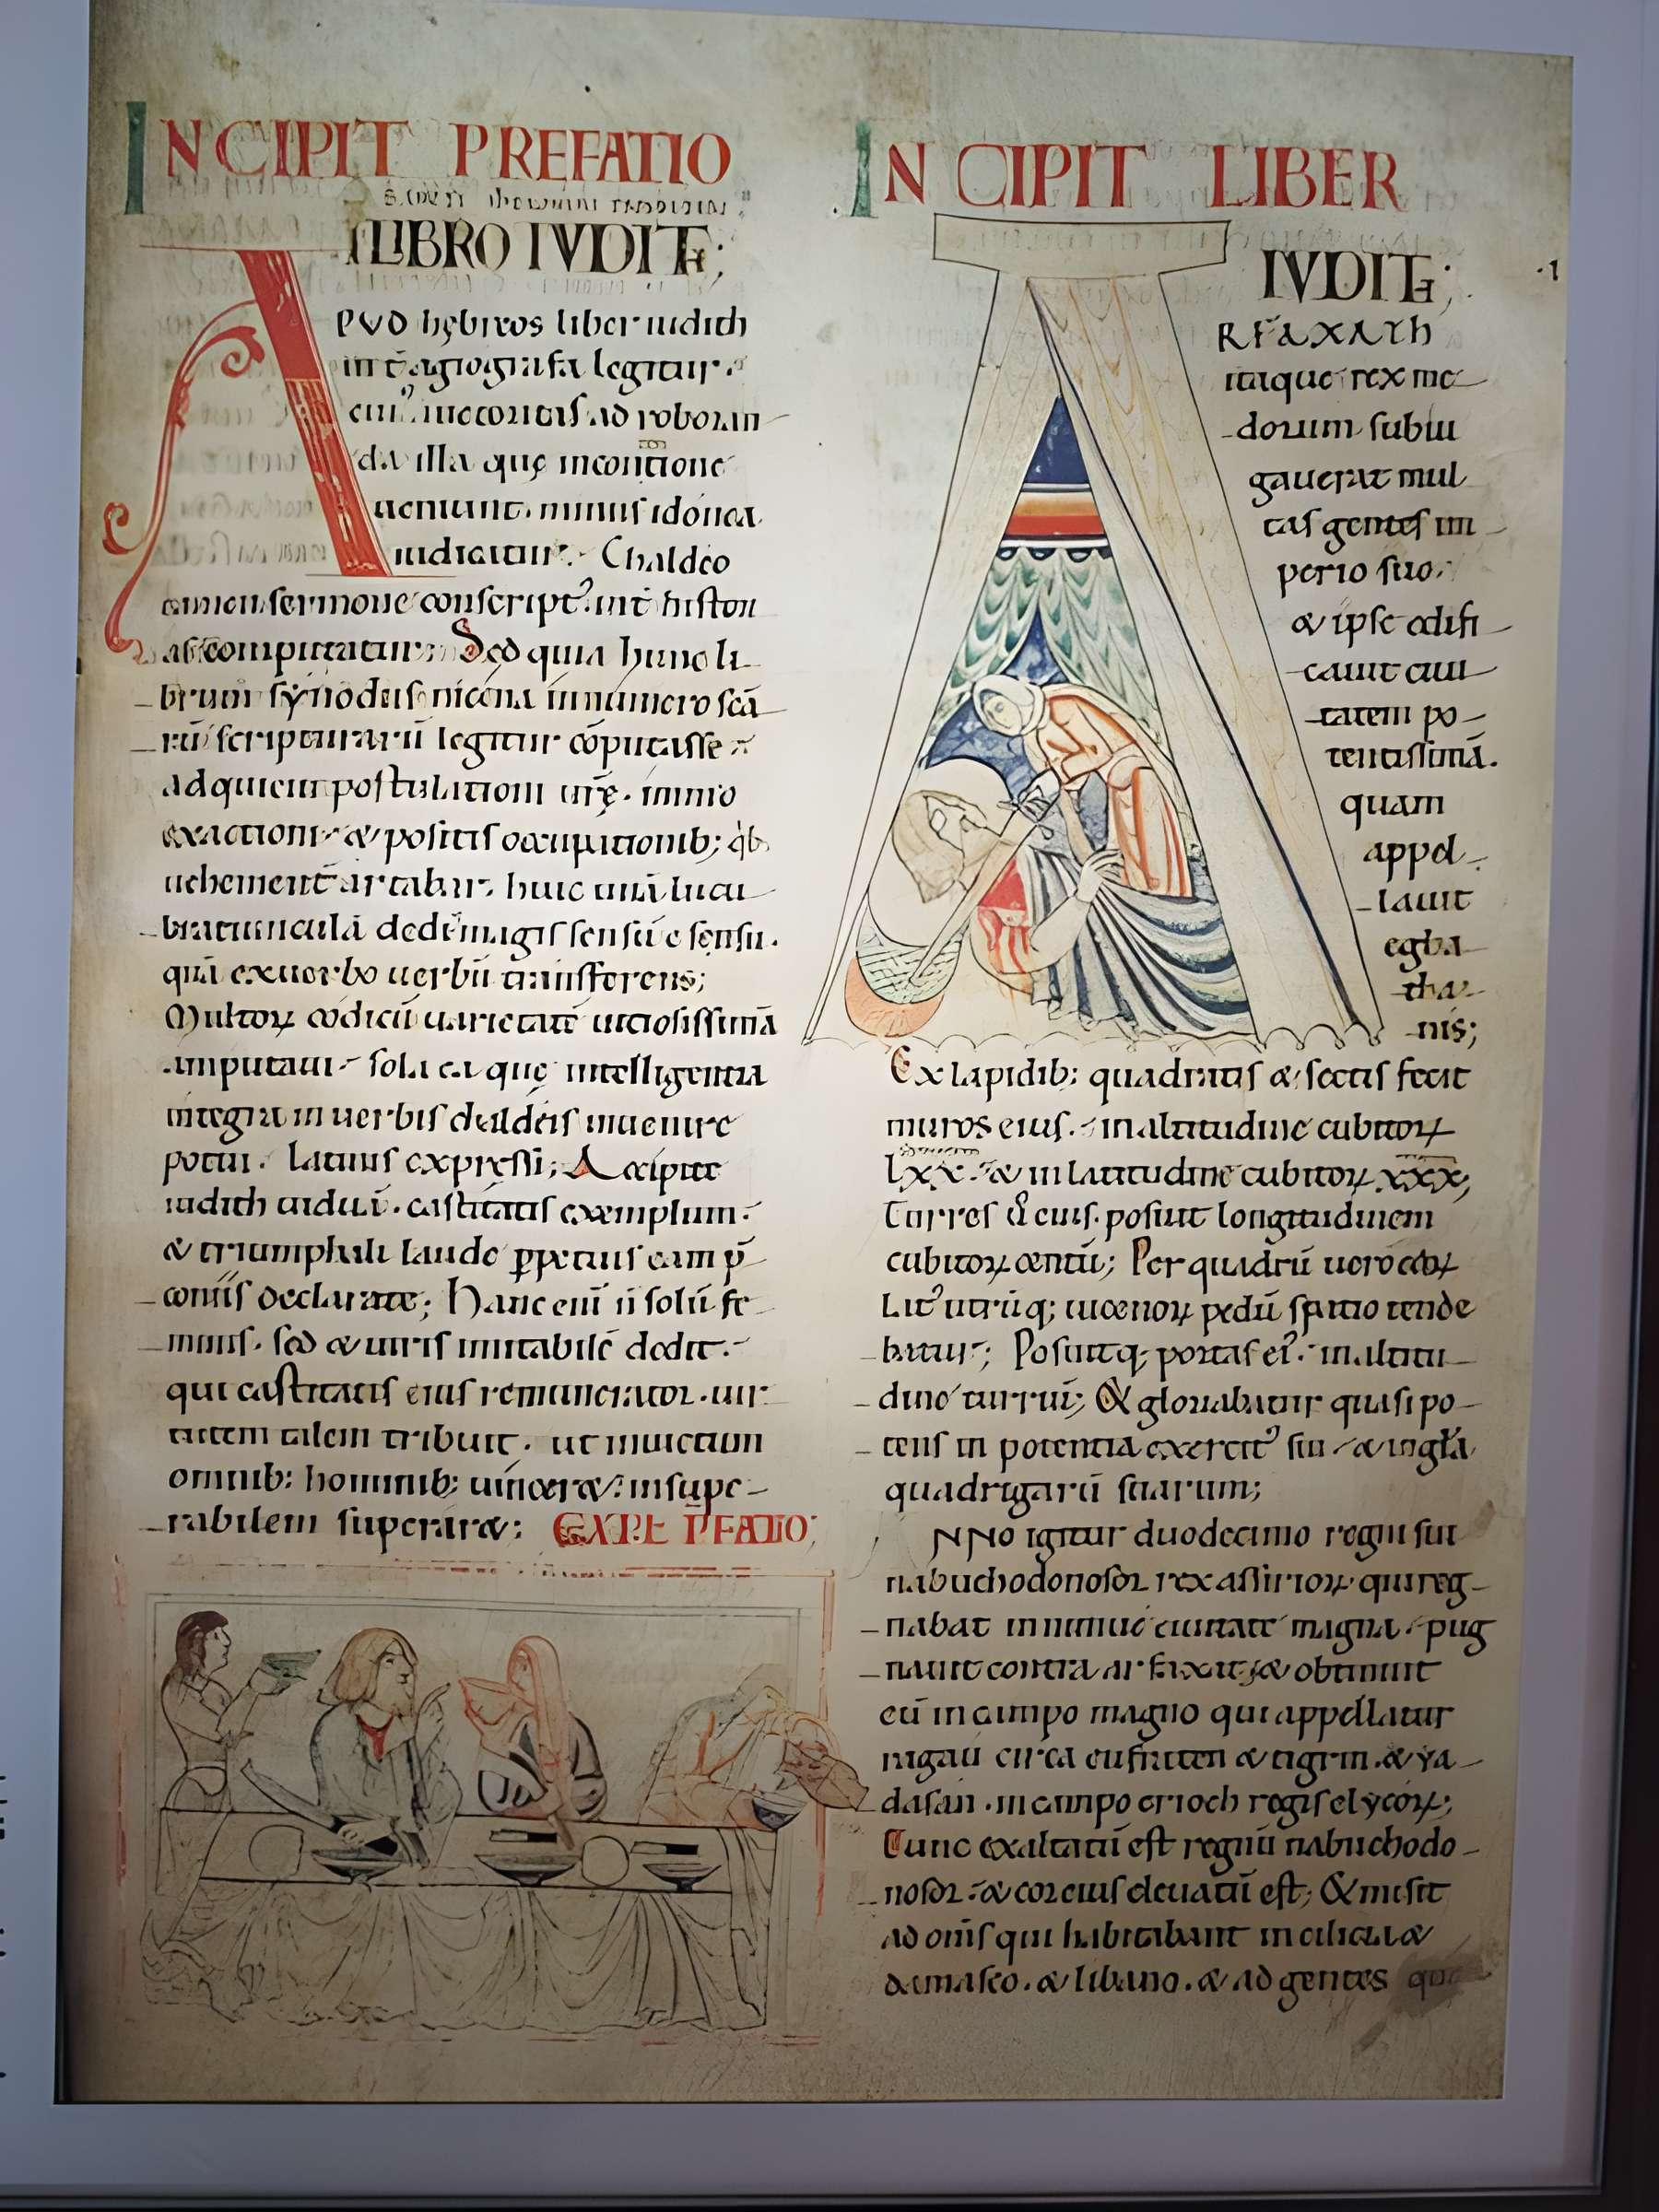 INCIPIT PREFATIO
IN LIBRO IVDITH;
APVD hebreos liber iudith
int̄ agiografa legitur.
cui᾽ auctoritas ad roboran
da illa quę in contentione
ueniunt. minus idonea
iudicatur. Chaldeo
tamen sermone conscript᾽ int̄ histori
as computatur. Sed quia hunc li
brum synodus nicena in numero scā
rū scripturarū legitur cōputasse.
adquieui postulationi ur̄ę. immo
exactioni. & positis occupationib; q᾽b;
uehement̄ artabar. huic unā lucu
bratiunculā dedi magis sensū e sensu.
quā ex uerbo uerbū transferens;
Multoꝝ codicū uarietatē uitiosissimā
amputaui. sola ea quę intelligentia
integra in uerbis chaldeis inuenire
potui. latinis expressi; Accipite
iudith uiduā. castitatis exemplum.
& triumphali laude ꝑpetuis eam p̄
coniis declarate; Hanc enī n̄ solū fe
minis. sed & uiris imitabilē dedit.
qui castitatis eius remunerator. uir
tutem talem tribuit. ut inuictum
omnib; hominib; uincer&. insupe
rabilem superar&; EXPL̄ P̄FATIO;
INCIPIT LIBER
IVDITH;
ARFAXATh
itaque rex me
dorum subiu
gauerat mul
tas gentes im
perio suo.
& ipse edifi
cauit ciui
tatem po
tentissimā.
quam
appel
lauit
egba
tha
nis;
Ex lapidib; quadratis & sectis fecit
muros eius. in altitudine cubitoꝝ
lxx. & in latitudine cubitoꝝ xxx;
Turres ū eius. posuit longitudinem
cubitoꝝ centū; Per quadrū uero eoꝝ
lat᾽ utrūq; uicenoꝝ pedū spatio tende
batur; Posuitq; portas ei᾽. in altitu
dine turriū; & gloriabatur quasi po
tens in potentia exercit᾽ sui. & in gl̄a
quadrigarū suarum;
NNO igitur duodecimo regni sui
nabuchodonosor rex assirioꝝ. qui reg
nabat in niniue ciuitate magna. pug
nauit contra arfaxat. & obtinuit
eū in campo magno qui appellatur
ragau circa eufraten & tigrin. & ya
dasan. in campo erioch regis elycoꝝ;
Tunc exaltatū est regnū nabuchodo
nosor. & cor eius eleuatū est; & misit
ad om̄s qui habitabant in cilicia &
damasco. & libano. & ad gentes que